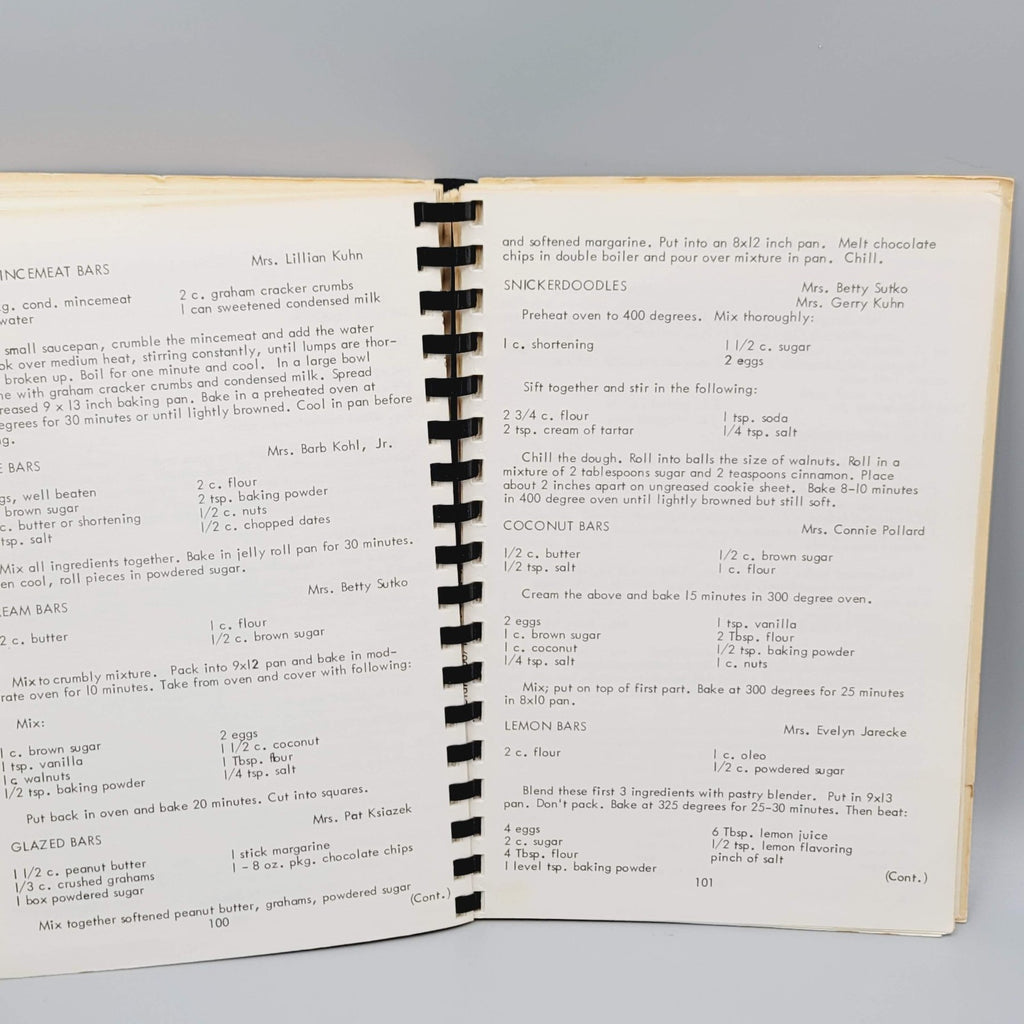 INCEMEAT BARS
Mrs. Lillian Kuhn
g. cond. mincemeat
water
2 c. graham cracker crumbs
1 can sweetened condensed milk
small saucepan, crumble the mincemeat and add the water
ok over medium heat, stirring constantly, until lumps are thor-
broken up. Boil for one minute and cool. In a large bowl
ne with graham cracker crumbs and condensed milk. Spread
reased 9 x 13 inch baking pan. Bake in a preheated oven at
egrees for 30 minutes or until lightly browned. Cool in pan before
g.
Mrs. Barb Kohl, Jr.
E BARS
gs, well beaten
brown sugar
c. butter or shortening
tsp. salt
2 c. flour
2 tsp. baking powder
1/2 c. nuts
1/2 c. chopped dates
Mix all ingredients together. Bake in jelly roll pan for 30 minutes.
en cool, roll pieces in powdered sugar.
Mrs. Betty Sutko
EAM BARS
2 c. butter
1 c. flour
1/2 c. brown sugar
Mix to crumbly mixture. Pack into 9x12 pan and bake in mod-
rate oven for 10 minutes. Take from oven and cover with following:
Mix:
1 c. brown sugar
1 tsp. vanilla
1 c walnuts
1/2 tsp. baking powder
2 eggs
1 1/2 c. coconut
1 Tbsp. flour
1/4 tsp. salt
Put back in oven and bake 20 minutes. Cut into squares.
Mrs. Pat Ksiazek
GLAZED BARS
1 1/2 c. peanut butter
1/3 c. crushed grahams
1 box powdered sugar
1 stick margarine
1 - 8 oz. pkg. chocolate chips
Mix together softened peanut butter, grahams, powdered sugar
(Cont.)
100
and softened margarine. Put into an 8x12 inch pan. Melt chocolate
chips in double boiler and pour over mixture in pan. Chill.
SNICKERDOODLES
Mrs. Betty Sutko
Mrs. Gerry Kuhn
Preheat oven to 400 degrees. Mix thoroughly:
1 c. shortening
1 1/2 c. sugar
2 eggs
Sift together and stir in the following:
2 3/4 c. flour
2 tsp. cream of tartar
1 tsp. soda
1/4 tsp. salt
Chill the dough. Roll into balls the size of walnuts. Roll in a
mixture of 2 tablespoons sugar and 2 teaspoons cinnamon. Place
about 2 inches apart on ungreased cookie sheet. Bake 8-10 minutes
in 400 degree oven until lightly browned but still soft.
COCONUT BARS
Mrs. Connie Pollard
1/2 c. butter
1/2 tsp. salt
1/2 c. brown sugar
1 c. flour
Cream the above and bake 15 minutes in 300 degree oven.
2 eggs
1 c. brown sugar
1 c. coconut
1/4 tsp. salt
1 tsp. vanilla
2 Tbsp. flour
1/2 tsp. baking powder
1 c. nuts
Mix; put on top of first part. Bake at 300 degrees for 25 minutes
in 8x10 pan.
LEMON BARS
Mrs. Evelyn Jarecke
2 c. flour
1 c. oleo
1/2 c. powdered sugar
Blend these first 3 ingredients with pastry blender. Put in 9x13
pan. Don't pack. Bake at 325 degrees for 25-30 minutes. Then beat:
4 eggs
2 c. sugar
4 Tbsp. flour
1 level tsp. baking powder
6 Tbsp. lemon juice
1/2 tsp. lemon flavoring
pinch of salt
(Cont.)
101